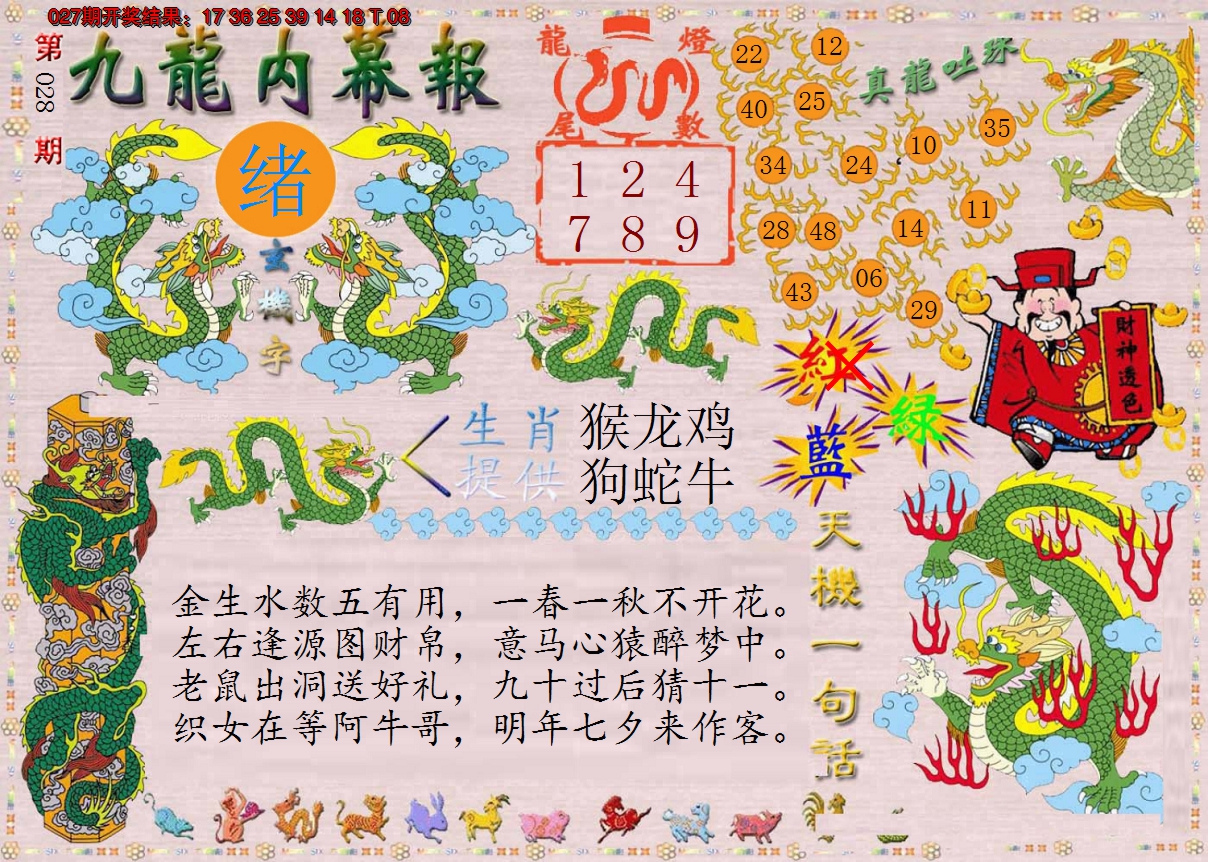 027期开奖结果：17 36 25 39 14 18 T 08
第028期
九龍内幕報
绪
玄機字
龍燈
尾數
1 2 4
7 8 9
真龍吐珠
22
12
40
25
35
10
34
24
11
28
48
14
06
43
29
紅
綠
藍
財神透色
生肖 猴龙鸡
提供 狗蛇牛
天機一句話
金生水数五有用，一春一秋不开花。
左右逢源图财帛，意马心猿醉梦中。
老鼠出洞送好礼，九十过后猜十一。
织女在等阿牛哥，明年七夕来作客。